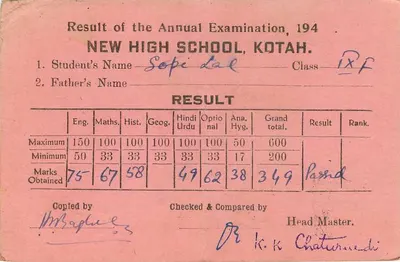 Result of the Annual Examination, 194
NEW HIGH SCHOOL, KOTAH.
1. Student's Name Gopi Lal Class IX F
2. Father's Name
RESULT
Eng. Maths. Hist. Geog. Hindi Urdu Oprio nal Ana. Hyg. Grand total. Result Rank.
Maximum 150 100 100 100 100 100 50 600
Minimum 50 33 33 33 33 33 17 200
Marks Obtained 75 67 58 49 62 38 349 Passed
Copied by Checked & Compared by
Head Master.
K. K Chaturvedi